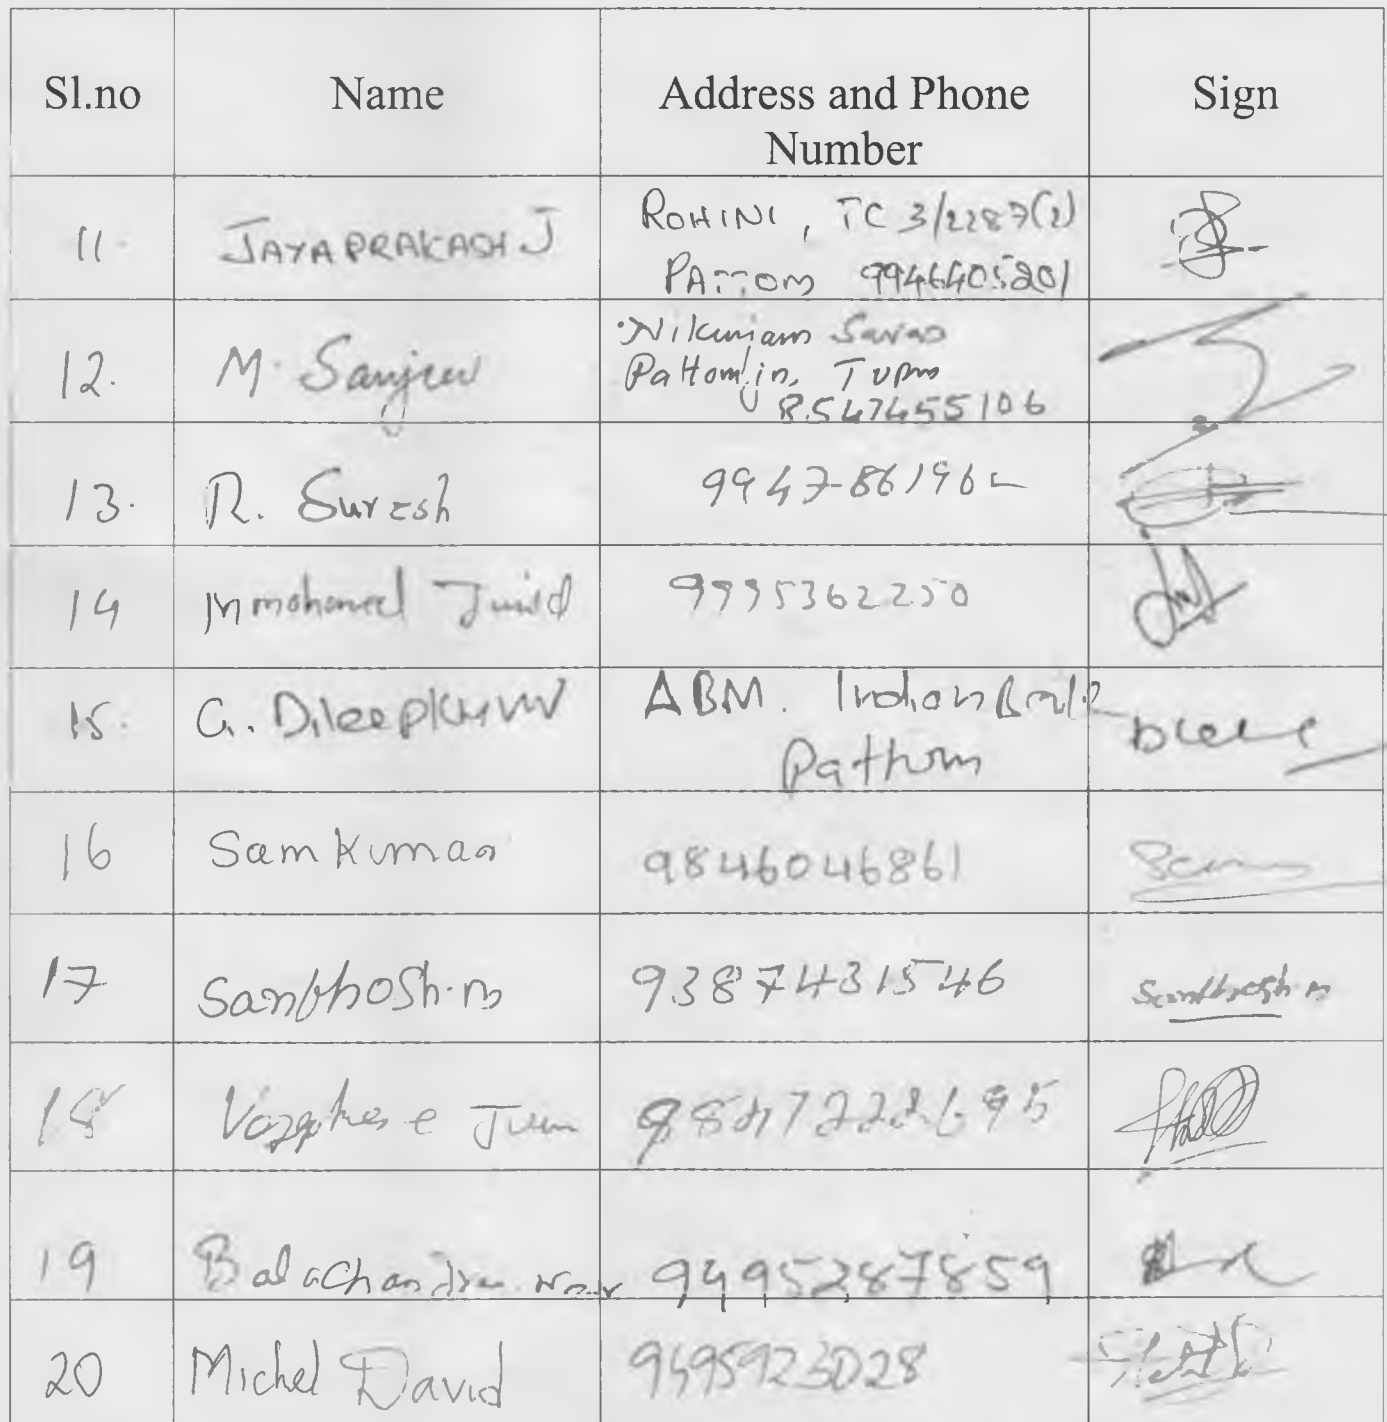 Sl.no Name Address and Phone Number Sign
11. JAYAPRAKASH J ROHINI, TC 3/2287(2)
PATTOM 9946405201
12. M. Sanjeev Nikunjam Saras
Pattom, Tvpm
8547455106
13. R. Suresh 9947-861962
14 M mohamed 9995362250
15. G. Dileepkumar ABM. Indian Bank
Pathom
16 Samkumar 9846046861 Sam
17 Santhosh.m 9387431546 Santhosh.m
18 Varghese 9847222695
19 Balachandran Nair 9495287859
20 Michel David 9495923028